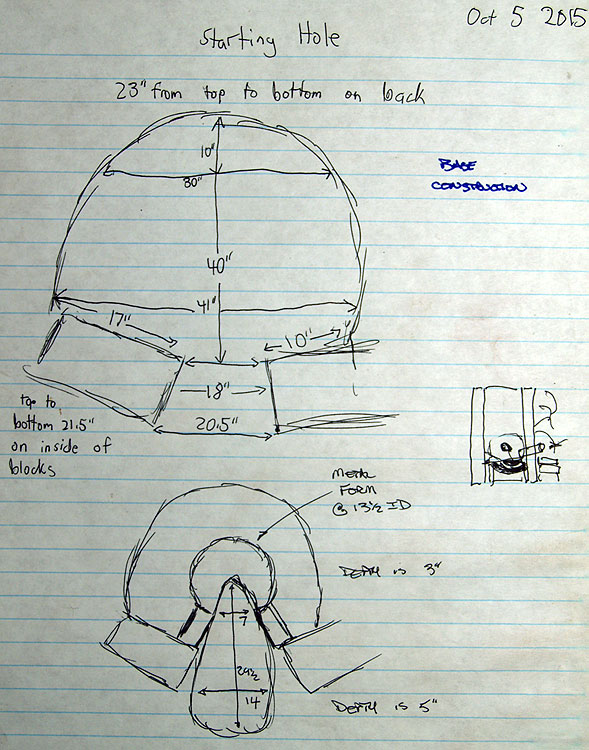 Oct 5 2015
Starting Hole
23" from top to bottom on back
10"
30"
BASE
CONSTRUCTION
40"
41"
17"
10"
18"
20.5"
top to
bottom 21.5"
on inside of
blocks
METAL
FORM
@ 13½ ID
DEPTH is 3"
7
29½
14
DEPTH is 5"